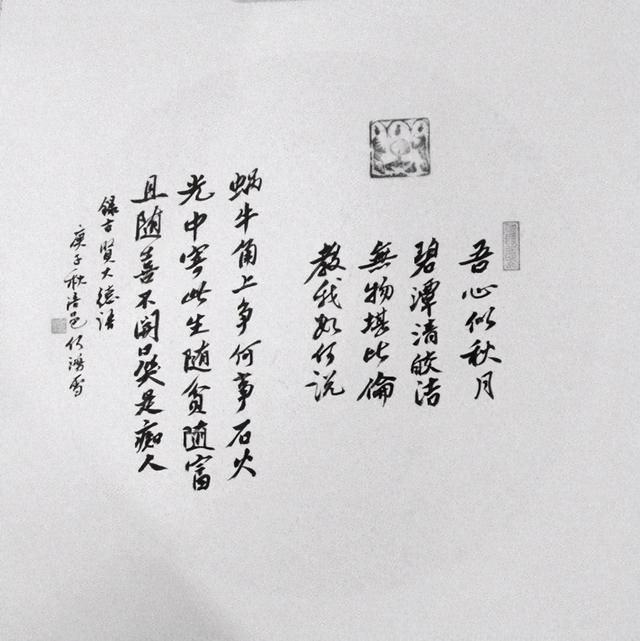 吾心似秋月
碧潭清皎洁
無物堪比倫
教我如何说
蜗牛角上争何事石火
光中寄此生随贫随富
且随喜不開口笑是痴人
録古賢大德语
庚子秋